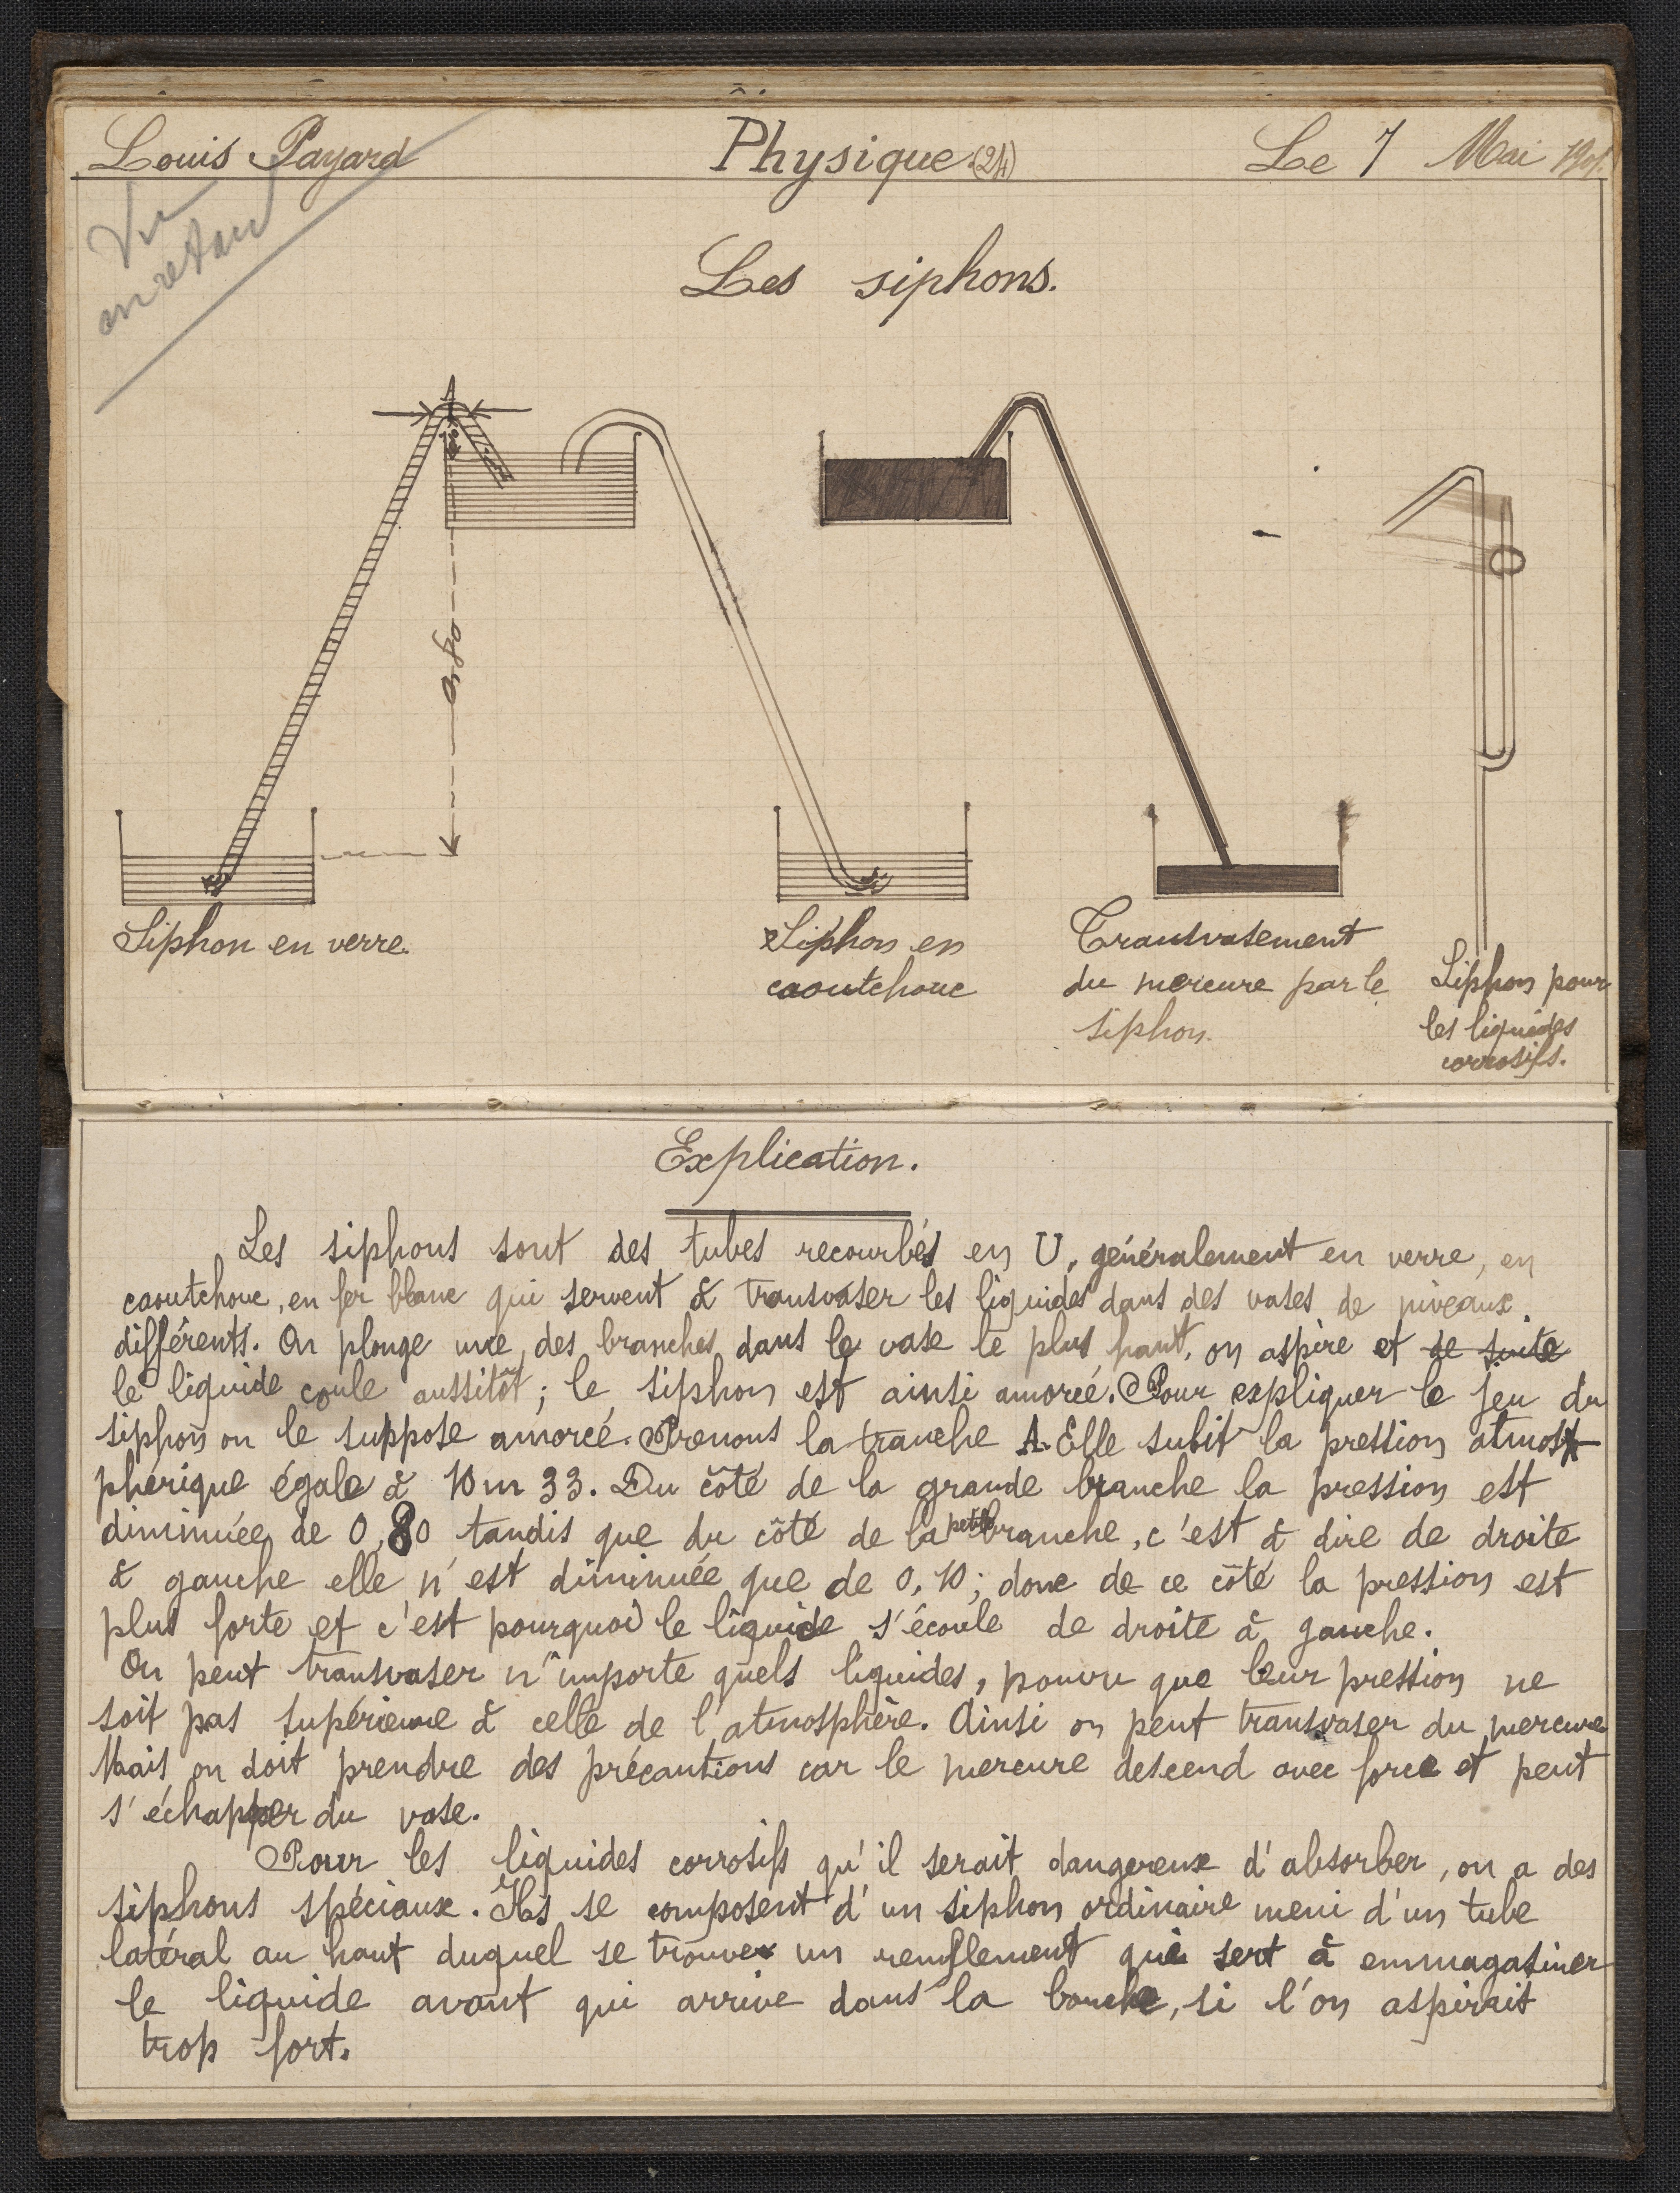 Louis Payard
Physique (24)
Le 7 Mai
Vu
en retard
Les siphons.
A
0,80
Siphon en verre.
Siphon en
caoutchouc
Transvasement
du mercure par le
siphon.
Siphon pour
les liquides
corrosifs.
Explication.
Les siphons sont des tubes recourbés en U, généralement en verre, en
caoutchouc, en fer blanc qui servent à transvaser les liquides dans des vases de niveaux
différents. On plonge une des branches dans le vase le plus haut, on aspire et de suite
le liquide coule aussitôt ; le siphon est ainsi amorcé. Pour expliquer le jeu du
siphon on le suppose amorcé. Prenons la tranche A. Elle subit la pression atmos
phérique égale à 10m 33. Du côté de la grande branche la pression est
diminuée de 0,80 tandis que du côté de la petite branche, c'est à dire de droite
à gauche elle n'est diminuée que de 0,10 ; donc de ce côté la pression est
plus forte et c'est pourquoi le liquide s'écoule de droite à gauche.
On peut transvaser n'importe quels liquides, pouvu que leur pression ne
soit pas supérieure à celle de l'atmosphère. Ainsi on peut transvaser du mercure
Mais on doit prendre des précautions car le mercure descend avec force et peut
s'échapper du vase.
Pour les liquides corrosifs qu'il serait dangereux d'absorber, on a des
siphons spéciaux. Ils se composent d'un siphon ordinaire meni d'un tube
latéral au haut duquel se trouve un renflement qui sert à emmagasiner
le liquide avant qui arrive dans la bouche, si l'on aspirait
trop fort.